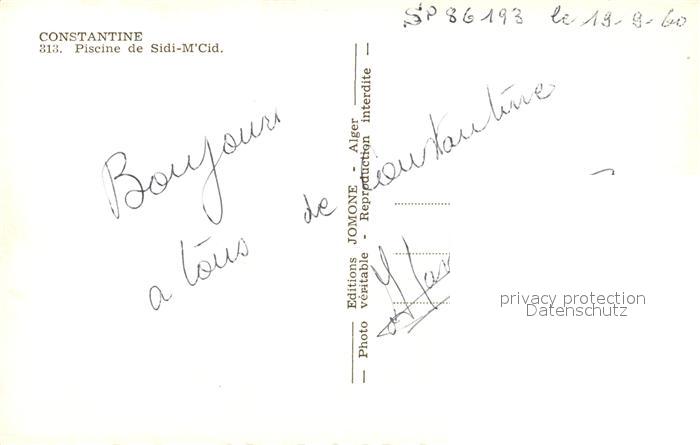 CONSTANTINE
313. Piscine de Sidi-M'Cid.
SP 86193 le 19-9-60
Bonjour
a tous de Constantine
Editions JOMONE - Alger
Photo véritable - Reproduction interdite
privacy protection
Datenschutz